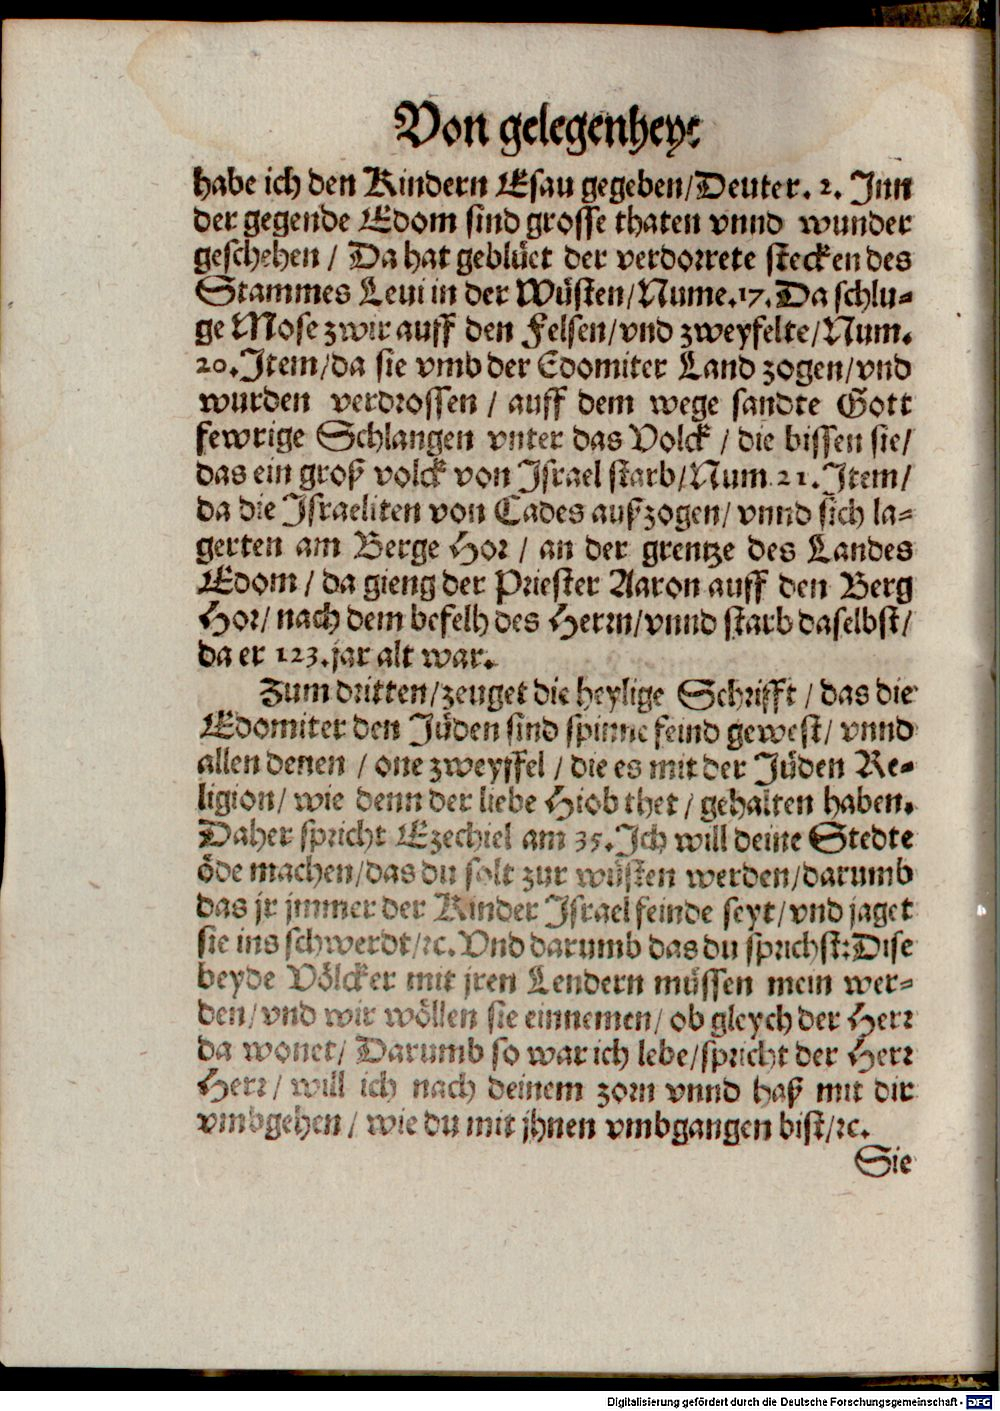 Von gelegenheyt
habe ich den Kindern Esau gegeben/Deuter. 2. Inn
der gegende Edom sind grosse thaten vnnd wunder
geschehen / Da hat geblüet der verdorrete stecken des
Stammes Leui in der Wüsten/Nume.17.Da schlu-
ge Mose zwir auff den Felsen/vnd zweyfelte/Num.
20.Item/da sie vmb der Edomiter Land zogen/vnd
wurden verdrossen / auff dem wege sandte Gott
fewrige Schlangen vnter das Volck / die bissen sie/
das ein groß volck von Israel starb/Num 21.Item/
da die Israeliten von Cades außzogen/ vnnd sich la-
gerten am Berge Hor / an der grentze des Landes
Edom / da gieng der Priester Aaron auff den Berg
Hor/ nach dem befelh des Herrn/vnnd starb daselbst/
da er 123.jar alt war.
Zum dritten/zeuget die heylige Schrifft / das die
Edomiter den Jüden sind spinne feind gewest/ vnnd
allen denen / one zweyffel / die es mit der Jüden Re-
ligion/ wie denn der liebe Hiob thet / gehalten haben.
Daher spricht Ezechiel am 35.Ich will deine Stedte
öde machen/das du solt zur wüsten werden/darumb
das jr jmmer der Kinder Israel feinde seyt/vnd jaget
sie ins schwerdt/ꝛc.Vnd darumb das du sprichst:Dise
beyde Völcker mit jren Lendern müssen mein wer-
den/vnd wir wöllen sie einnemen/ ob gleych der Herr
da wonet/ Darumb so war ich lebe/spricht der Herr
Herr/ will ich nach deinem zorn vnnd haß mit dir
vmbgehen / wie du mit jhnen vmbgangen bist/ꝛc.
Sie
Digitalisierung gefördert durch die Deutsche Forschungsgemeinschaft - DFG